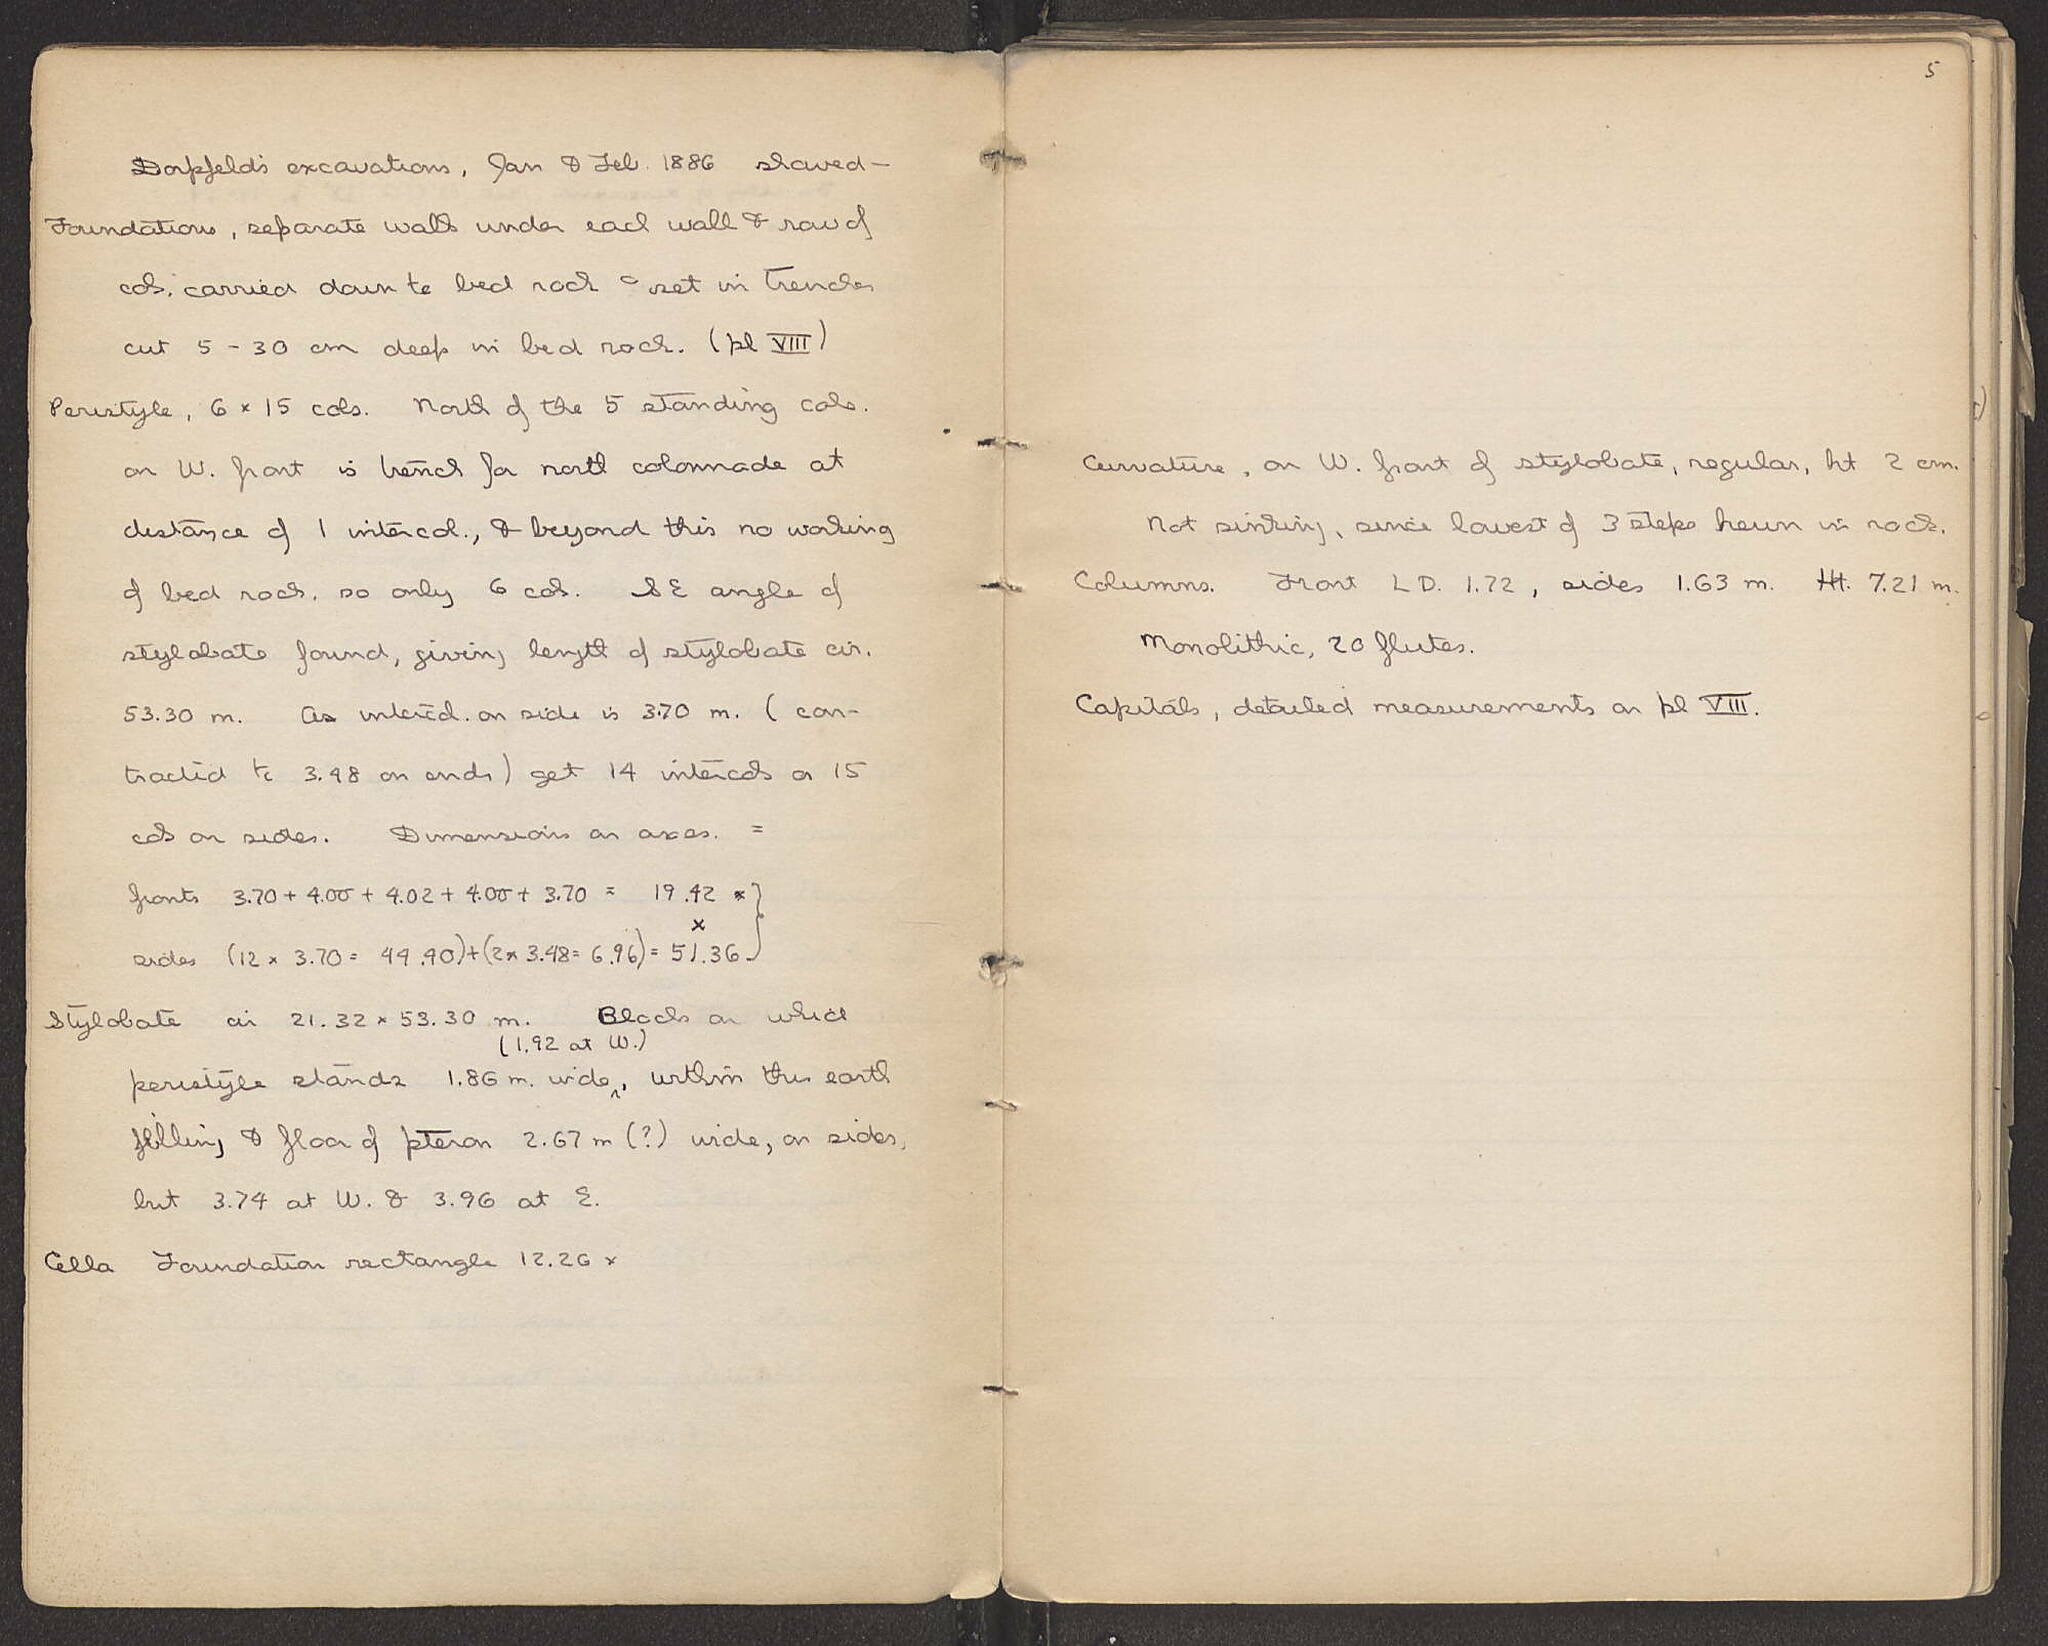 Dorpfeld's excavations, Jan & Feb. 1886 showed—
Foundations, separate walls under each wall & row of
cols. carried down to bed rock & set in trenches
cut 5 - 30 cm deep in bed rock. (pl VIII)
Peristyle, 6 × 15 cols. North of the 5 standing cols.
on W. front is trench for north colonnade at
distance of 1 intercol., & beyond this no working
of bed rock. so only 6 cols. SE angle of
stylobate found, giving length of stylobate cir.
53.30 m. As intercol. on side is 3.70 m. (con-
tracted to 3.48 on ends) get 14 intercols or 15
cols on sides. Dimensions on axes. =
fronts 3.70 + 4.00 + 4.02 + 4.00 + 3.70 = 19.42 ×}
×
sides (12 × 3.70 = 44.40) + (2 × 3.48 = 6.96) = 51.36
Stylobate cir 21.32 × 53.30 m. Blocks on which
(1.92 at W.)
peristyle stands 1.86 m. wide‸, within this earth
filling & floor of pteron 2.67 m (?) wide, on sides,
but 3.74 at W. & 3.96 at E.
Cella Foundation rectangle 12.26 ×
5
Curvature, on W. front of stylobate, regular, ht 2 cm.
Not sinking, since lowest of 3 steps hewn in rock.
Columns. Front L D. 1.72, sides 1.63 m. Ht. 7.21 m.
Monolithic, 20 flutes.
Capitals, detailed measurements on pl VIII.